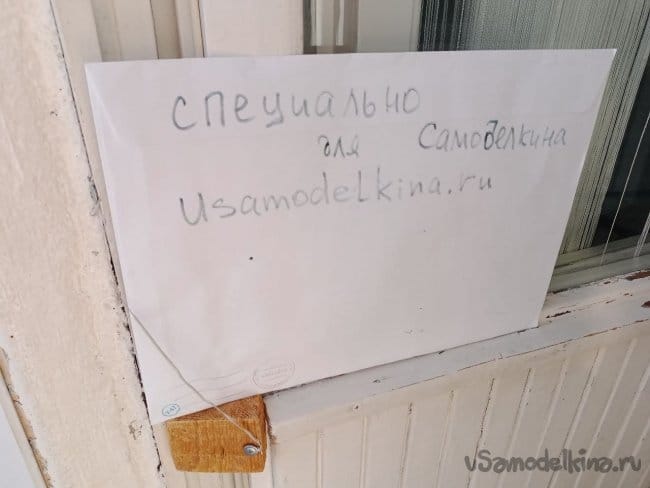 специально
для Самоделкина
usamodelkina.ru
vSamodelkina.ru